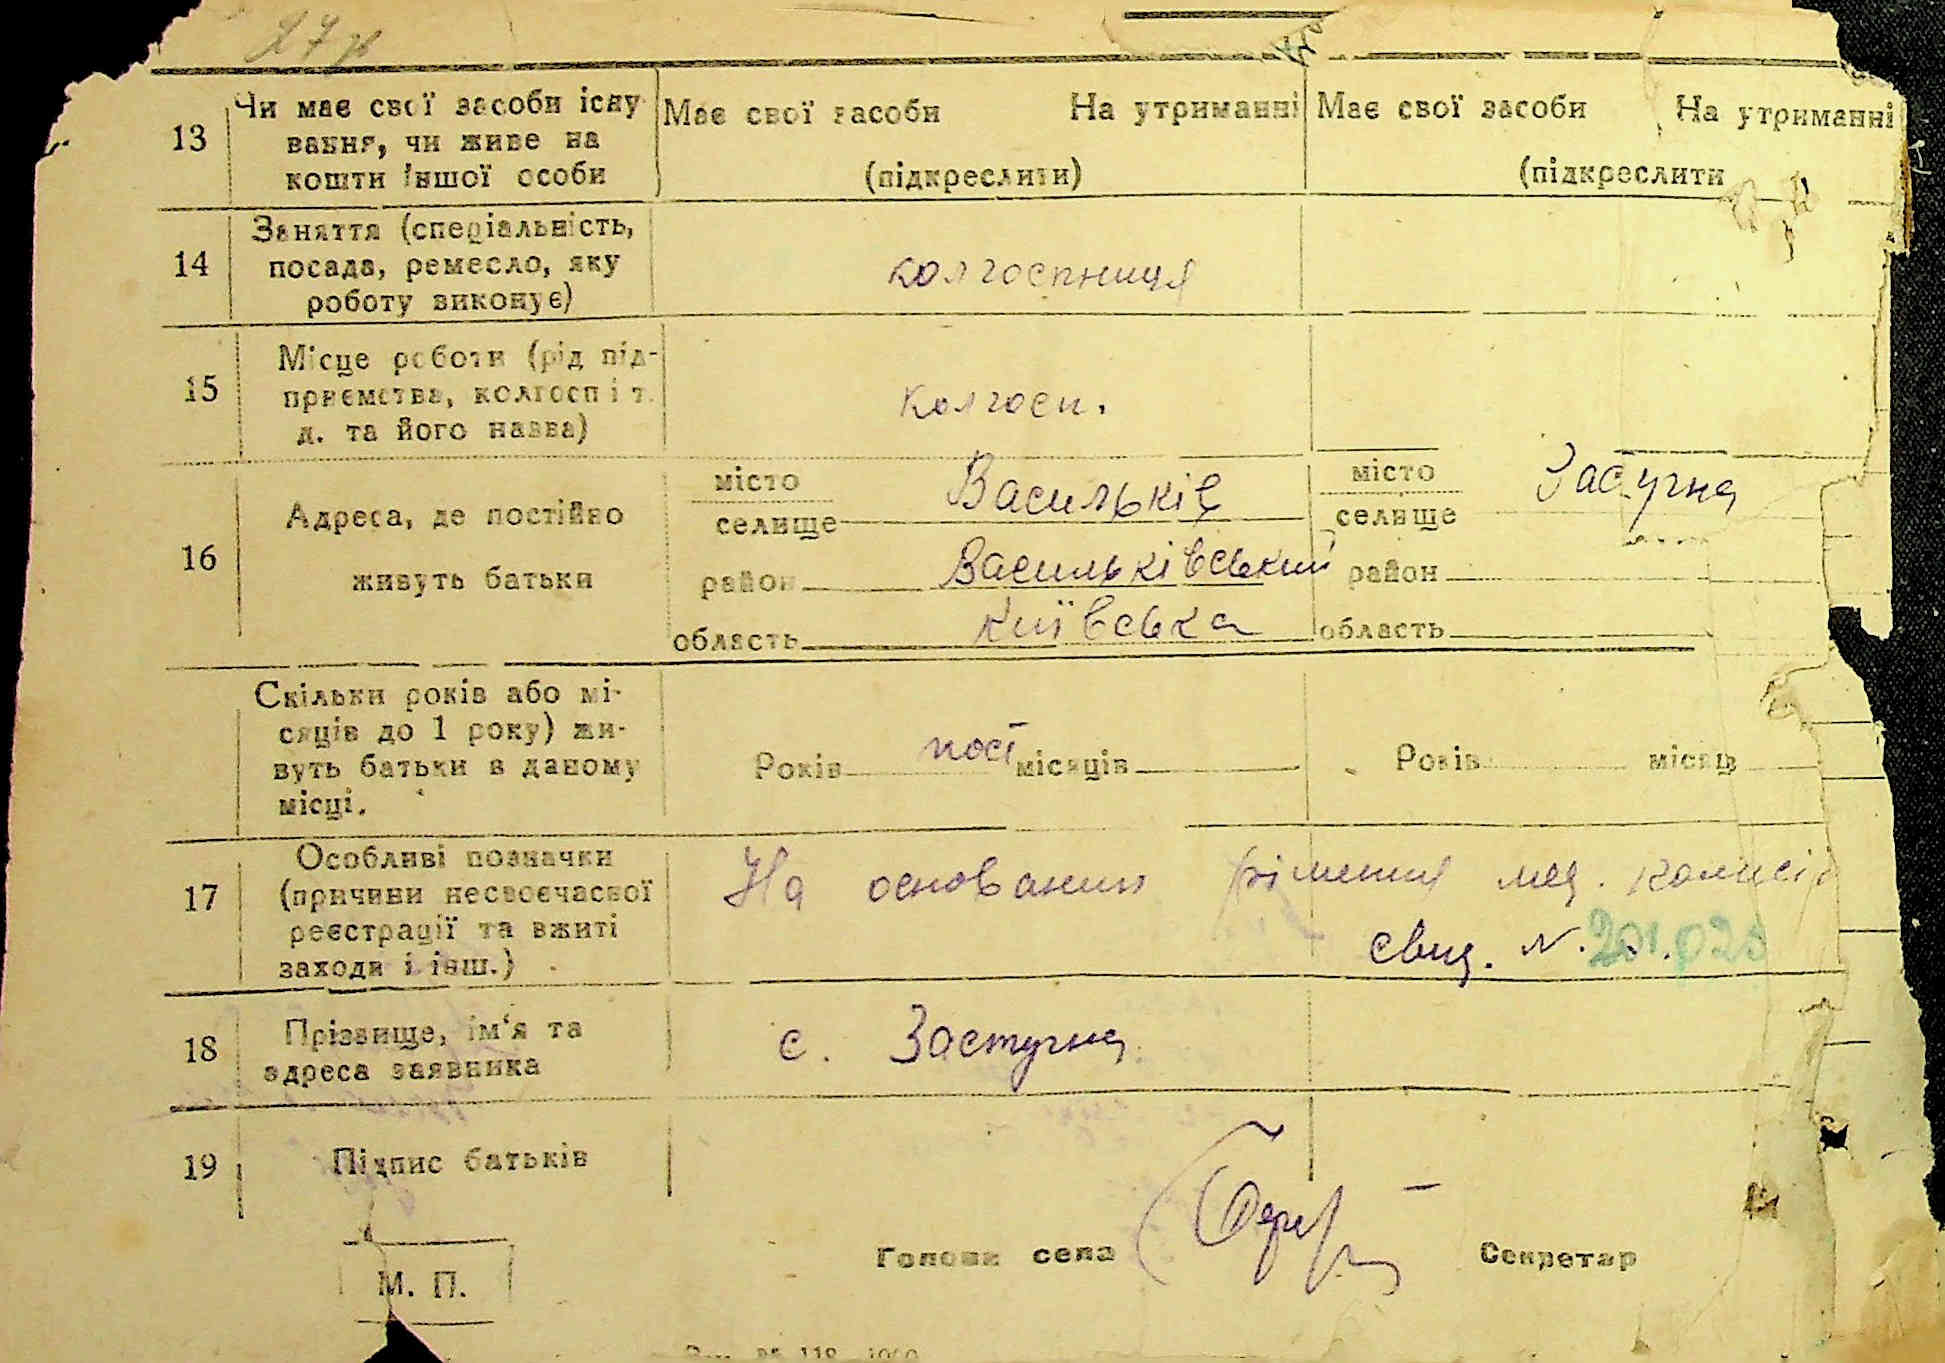 13 Чи має свої засоби існу
вання, чи живе на
кошти іншої особи
Має свої засоби На утриманні
(підкреслити)
Має свої засоби На утриманні
(підкреслити
14 Заняття (спеціальність,
посада, ремесло, яку
роботу виконує)
колгоспниця
15 Місце роботи (рід під-
приємства, колгосп і т.
д. та його назва)
колгосп.
16 Адреса, де постійно
живуть батьки
місто Васильків
селище
район Васильківський
область київська
місто Засучна
селище
район
область
Скільки років або мі-
сяців до 1 року) жи-
вуть батьки в даному
місці.
Років пост місяців
Років місяц
17 Особливі позначки
(причини несвоєчасної
реєстрації та вжиті
заходи і інш.)
На основании рішения мед. комисії
свид. N. 201.025
18 Прізвище, ім'я та
адреса заявника
с. Застучна
19 Підпис батьків
М. П.
Голова села Секретар